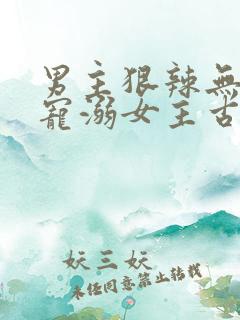 男主狠辣無
寵溺女主古
妖三妖
未经同意禁止转载